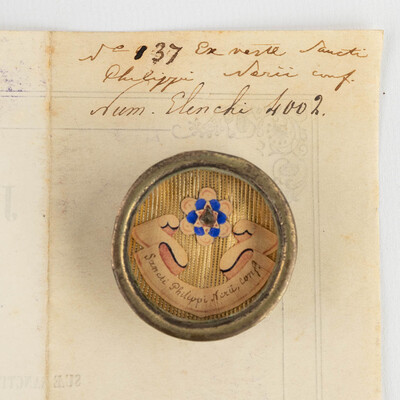 N.º 137 Ex veste Sancti
Philippi Nerii conf.
Num. Elenchi 4002.
Sancti Philippi Nerii, conf.